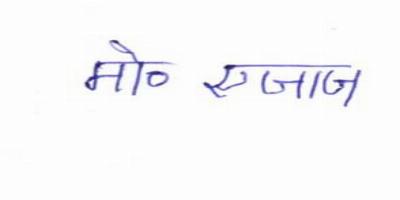 मो० एजाज